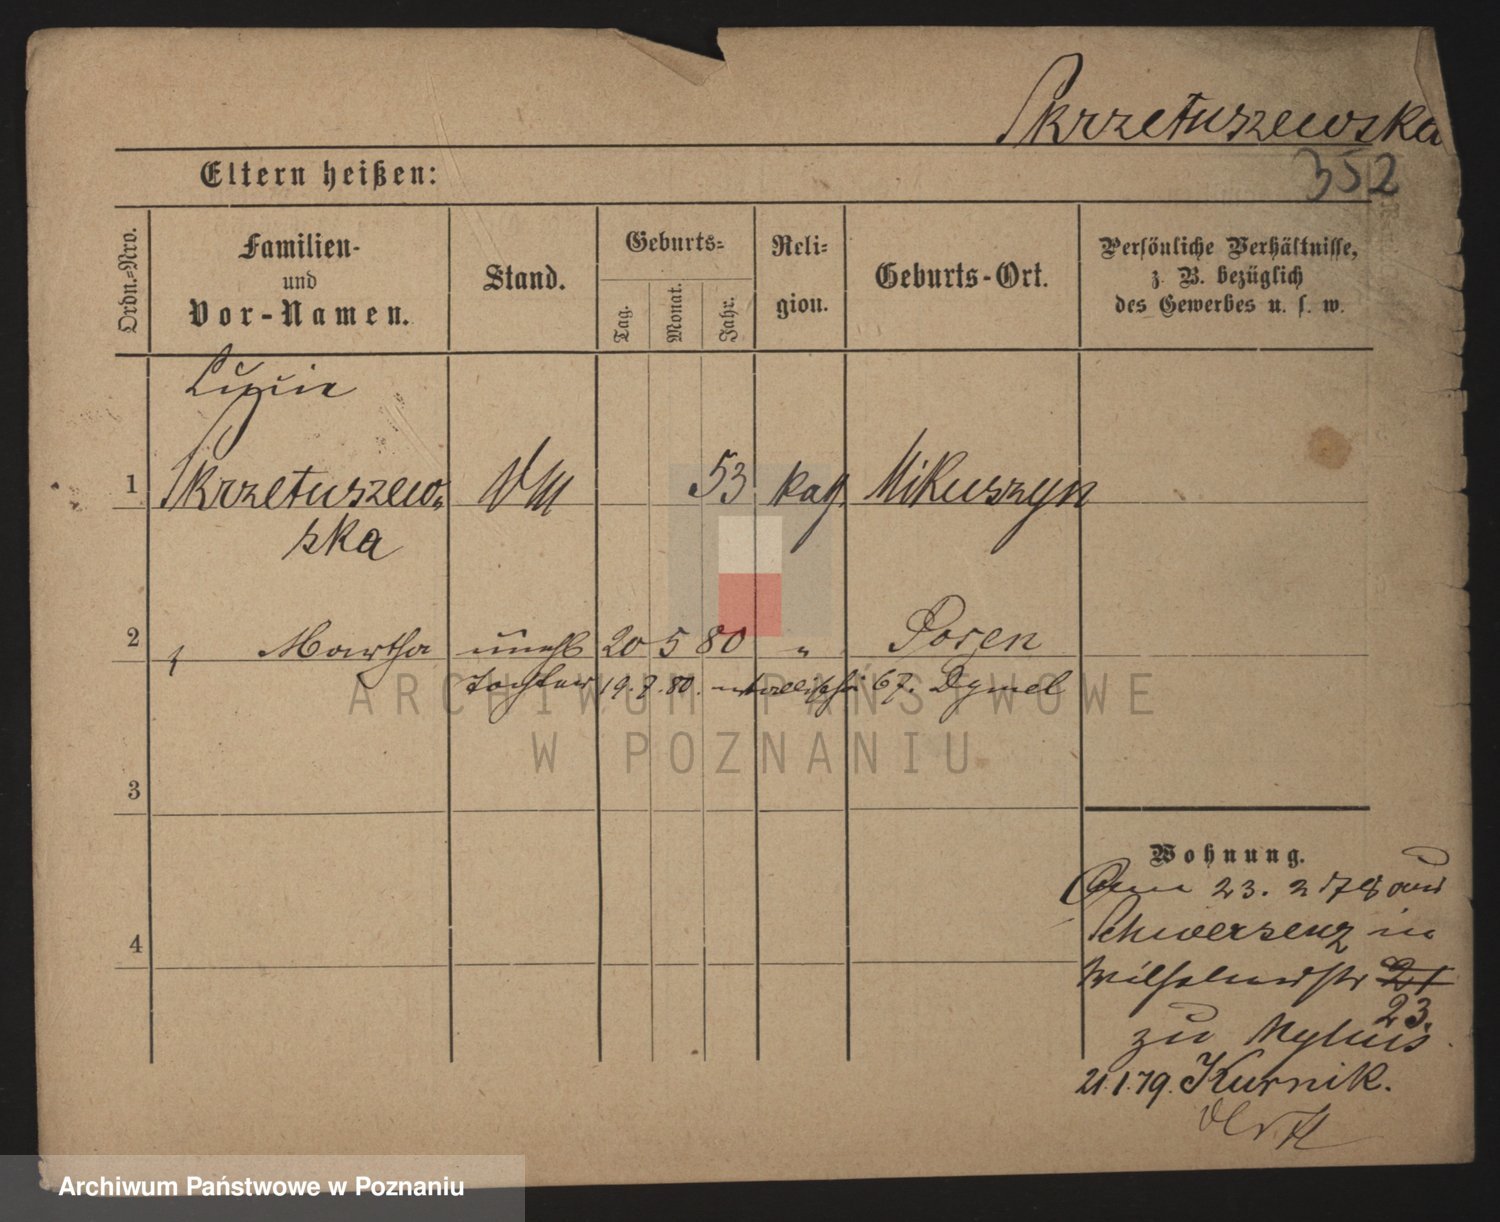 Skrzetuszewska
352
Eltern heißen:
Ordn.-Nro.
Familien-
und
Vor-Namen.
Stand.
Geburts-
Tag.
Monat.
Jahr.
Reli-
gion.
Geburts-Ort.
Persönliche Verhältnisse,
z. B. bezüglich
des Gewerbes u. s. w.
1
Luzie
Skrzetuszew-
ska
53
kath.
Mikuszyn
2
" Martha
unehl
20 5 80
"
Posen
Tochter 19. 7. 80. 67. Dymel
3
4
Wohnung.
23. 2 78 aus
Schwersenz in
Wilhelmstr 21
23.
zu Mylius
21.1.79. Kurnik.
ARCHIWUM PAŃSTWOWE
W POZNANIU
Archiwum Państwowe w Poznaniu